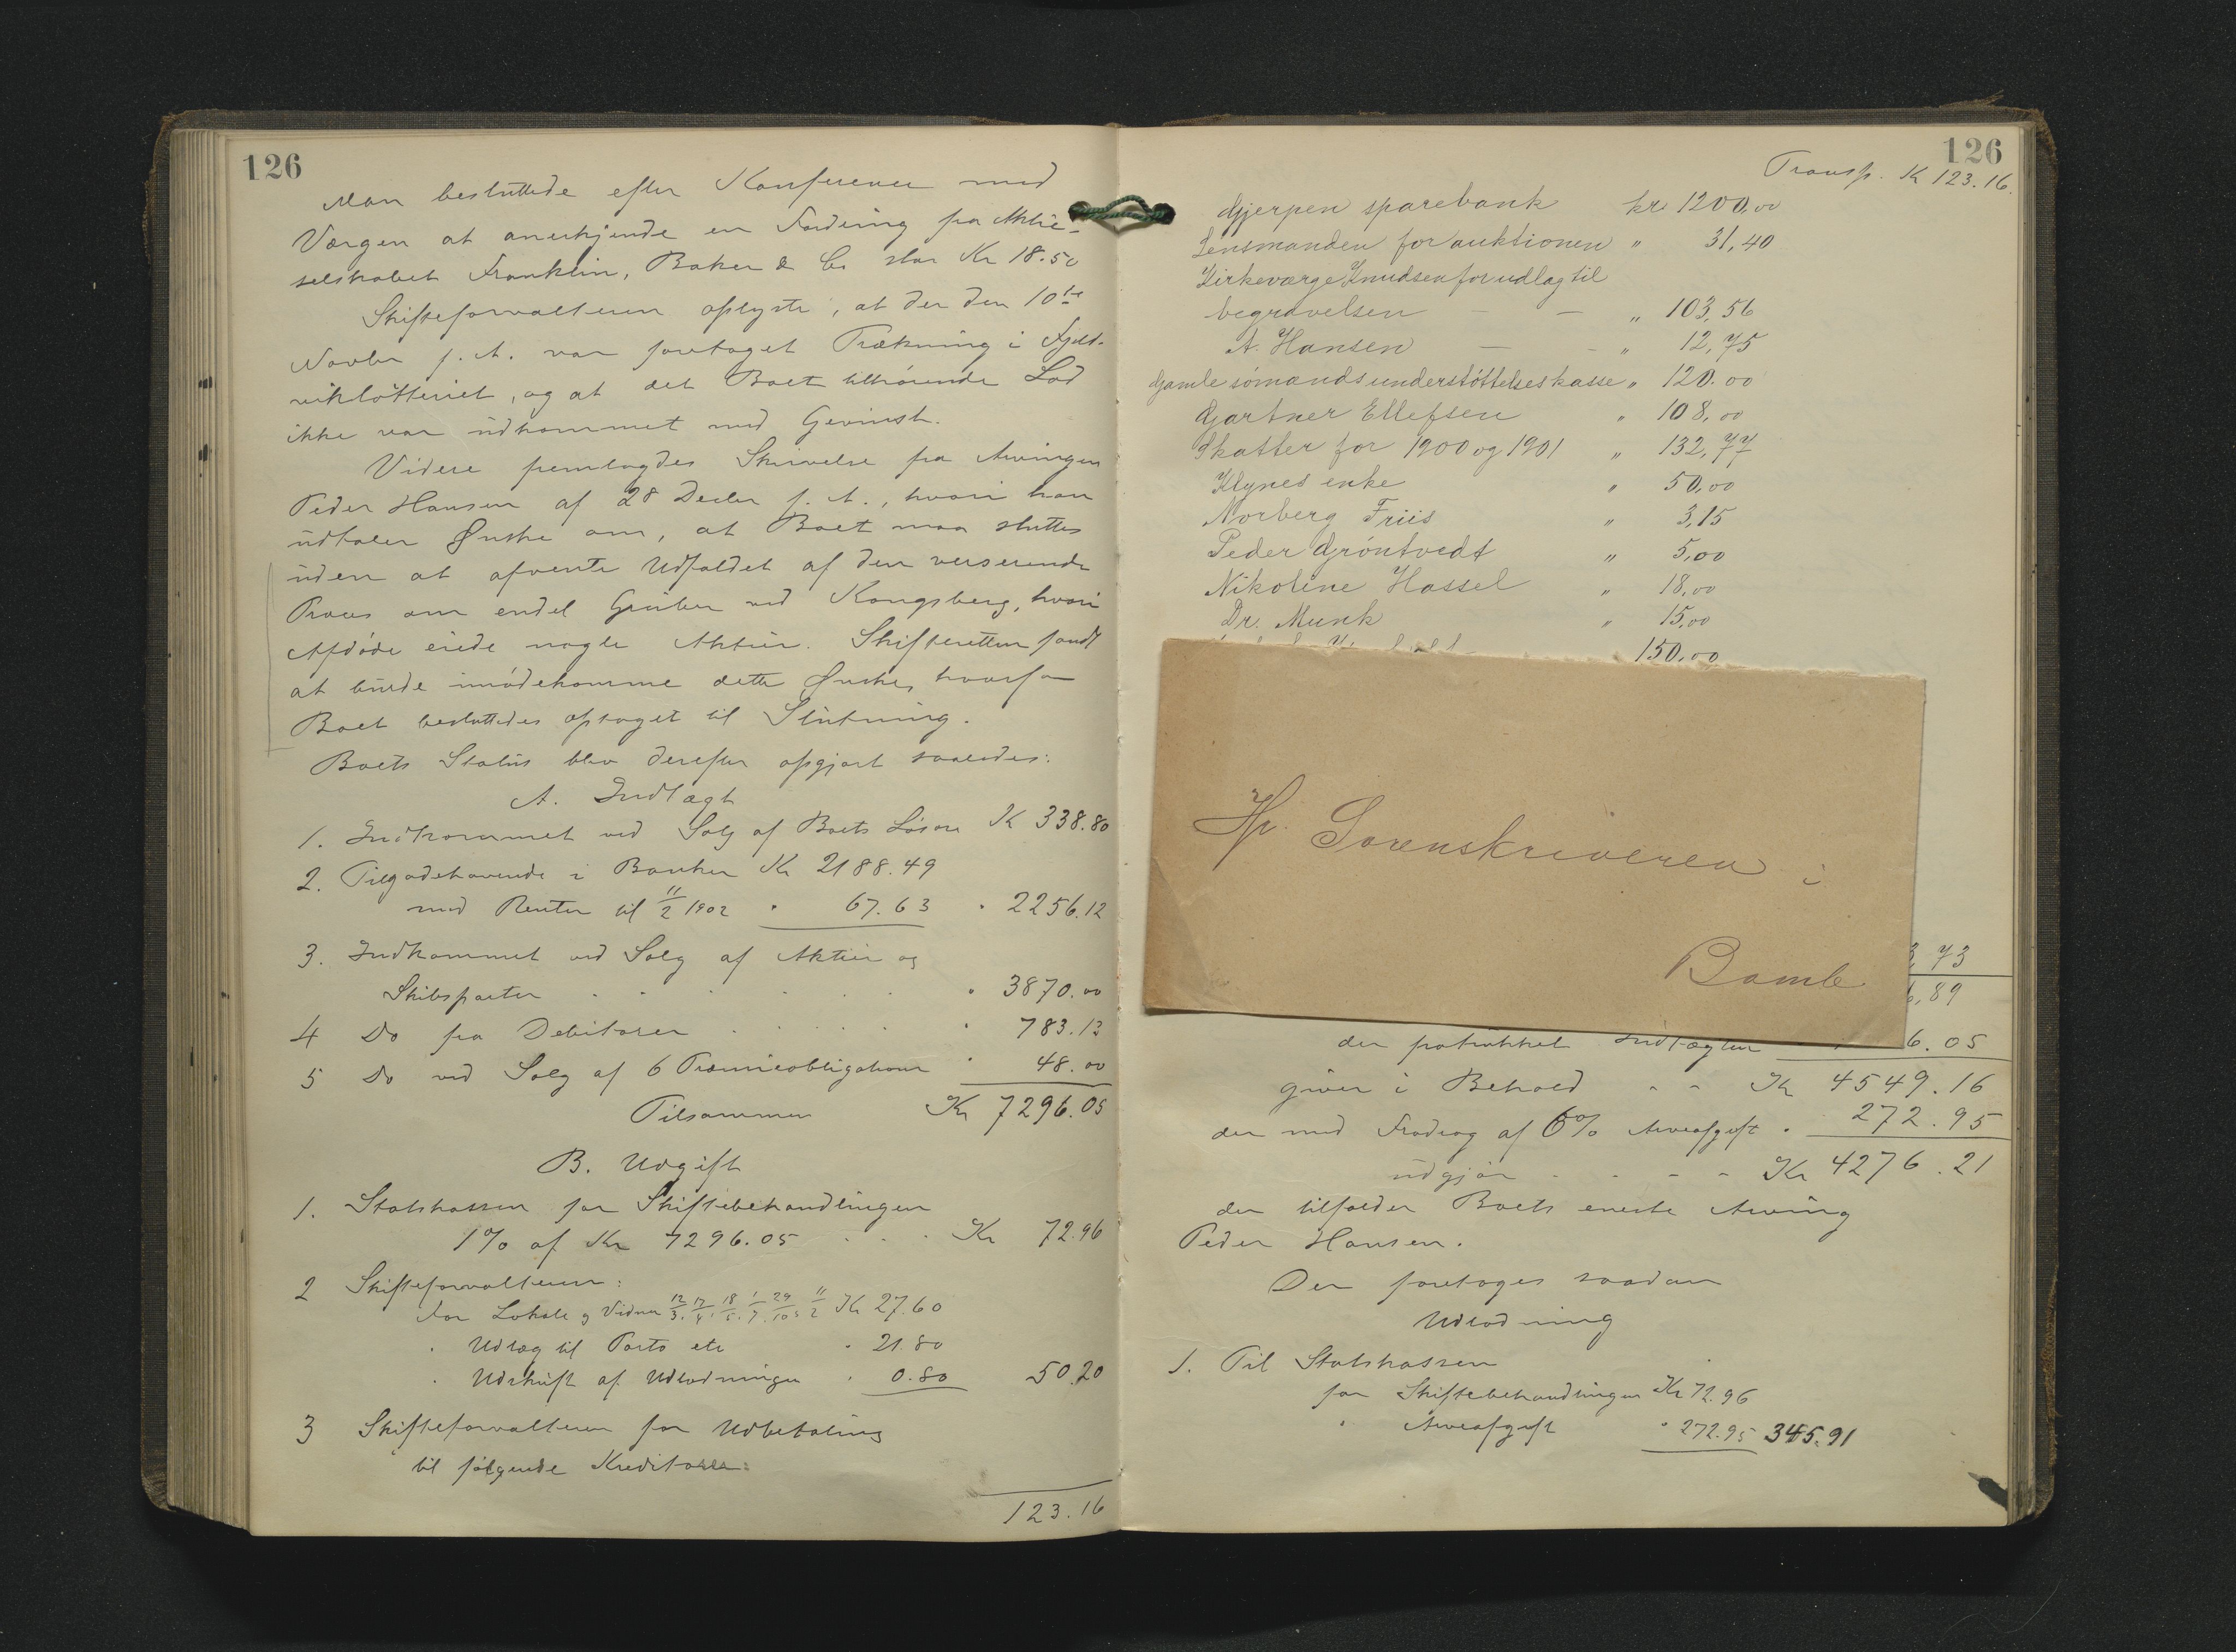 126
Man besluttede efter Konferense med
Værgen at anerkjende en Fordring fra Aktie-
selskabet Franklin, Baker & Co stor Kr 18.50
Skifteforvalteren oplyste, at der den 10de
Novbr f. A. var foretaget Trækning i
, og at det Boet tilhørende Lod
ikke var udkommet med Gevinst.
Videre fremlagdes Skrivelse fra Arvingen
Peder Hansen af 28 Decbr f. A., hvori han
udtaler Ønske om, at Boet maa sluttes
uden at afvente Udfaldet af den verserende
Proces om endel Gruber ved Kongsberg, hvori
Afdøde eiede nogle Aktier. Skifteretten fandt
at burde imødekomme dette Ønske, hvorfor
Boet besluttedes optaget til Slutning.
Boets Status blev derefter opgjort saaledes:
A. Indtægt
1. Indkommet ved Salg af Boets Løsøre K 338.80
2. Tilgodehavende i Banker Kr 2188.49
med Renter til 11/2 1902 " 67.63 " 2256.12
3. Indkommet ved Salg af Aktier og
Skibsparter " 3870.00
4 Do fra Debitorer " 783.13
5 Do ved Salg af 6 Præmieobligationer " 48.00
Tilsammen Kr 7296.05
B. Udgift
1. Statskassen for Skiftebehandlingen
1% af Kr 7296.05 Kr 72.96
2 Skifteforvalteren:
For Lokale og Vidner 12/3, 17/4, 18/5, 1/7, 29/10, 11/2 Kr 27.60
" Udlæg til Porto etc " 21.80
" Udskrift af Udlodningen " 0.80 50.20
3 Skifteforvalteren for Udbetaling
til følgende Kreditorer:
123.16
126
Transp. K 123.16.
Gjerpen sparebank kr. 1200,00
Lensmanden for auktionen " 31,40
Kirkeværge Knudsen for udlæg til
begravelsen — — " 103,56
A. Hansen — - " 12,75
Gamle sømandsunderstøttelseskasse " 120.00
Gartner Ellefsen " 108,00
Skatter for 1900 og 1901 " 132,77
Klynes enke " 50,00
Norberg Friis " 3,15
Peder Grøntvedt " 5,00
Nikoline Hassel " 18,00
Dr. Munk " 15,00
150,00
Hr. Sorenskriveren i
Bamle
3,73
6,89
der fratrukket Indtægten 6.05
giver i Behold - - Kr 4549.16
der med Fradrag af 6% Arveafgift " 272.95
udgjør - - - - Kr 4276.21
der tilfalder Boets eneste Arving
Peder Hansen.
Der foretages saadan
Udlodning
1. Til Statskassen
for Skiftebehandlingen Kr 72.96
" Arveafgift " 272.95 345.91